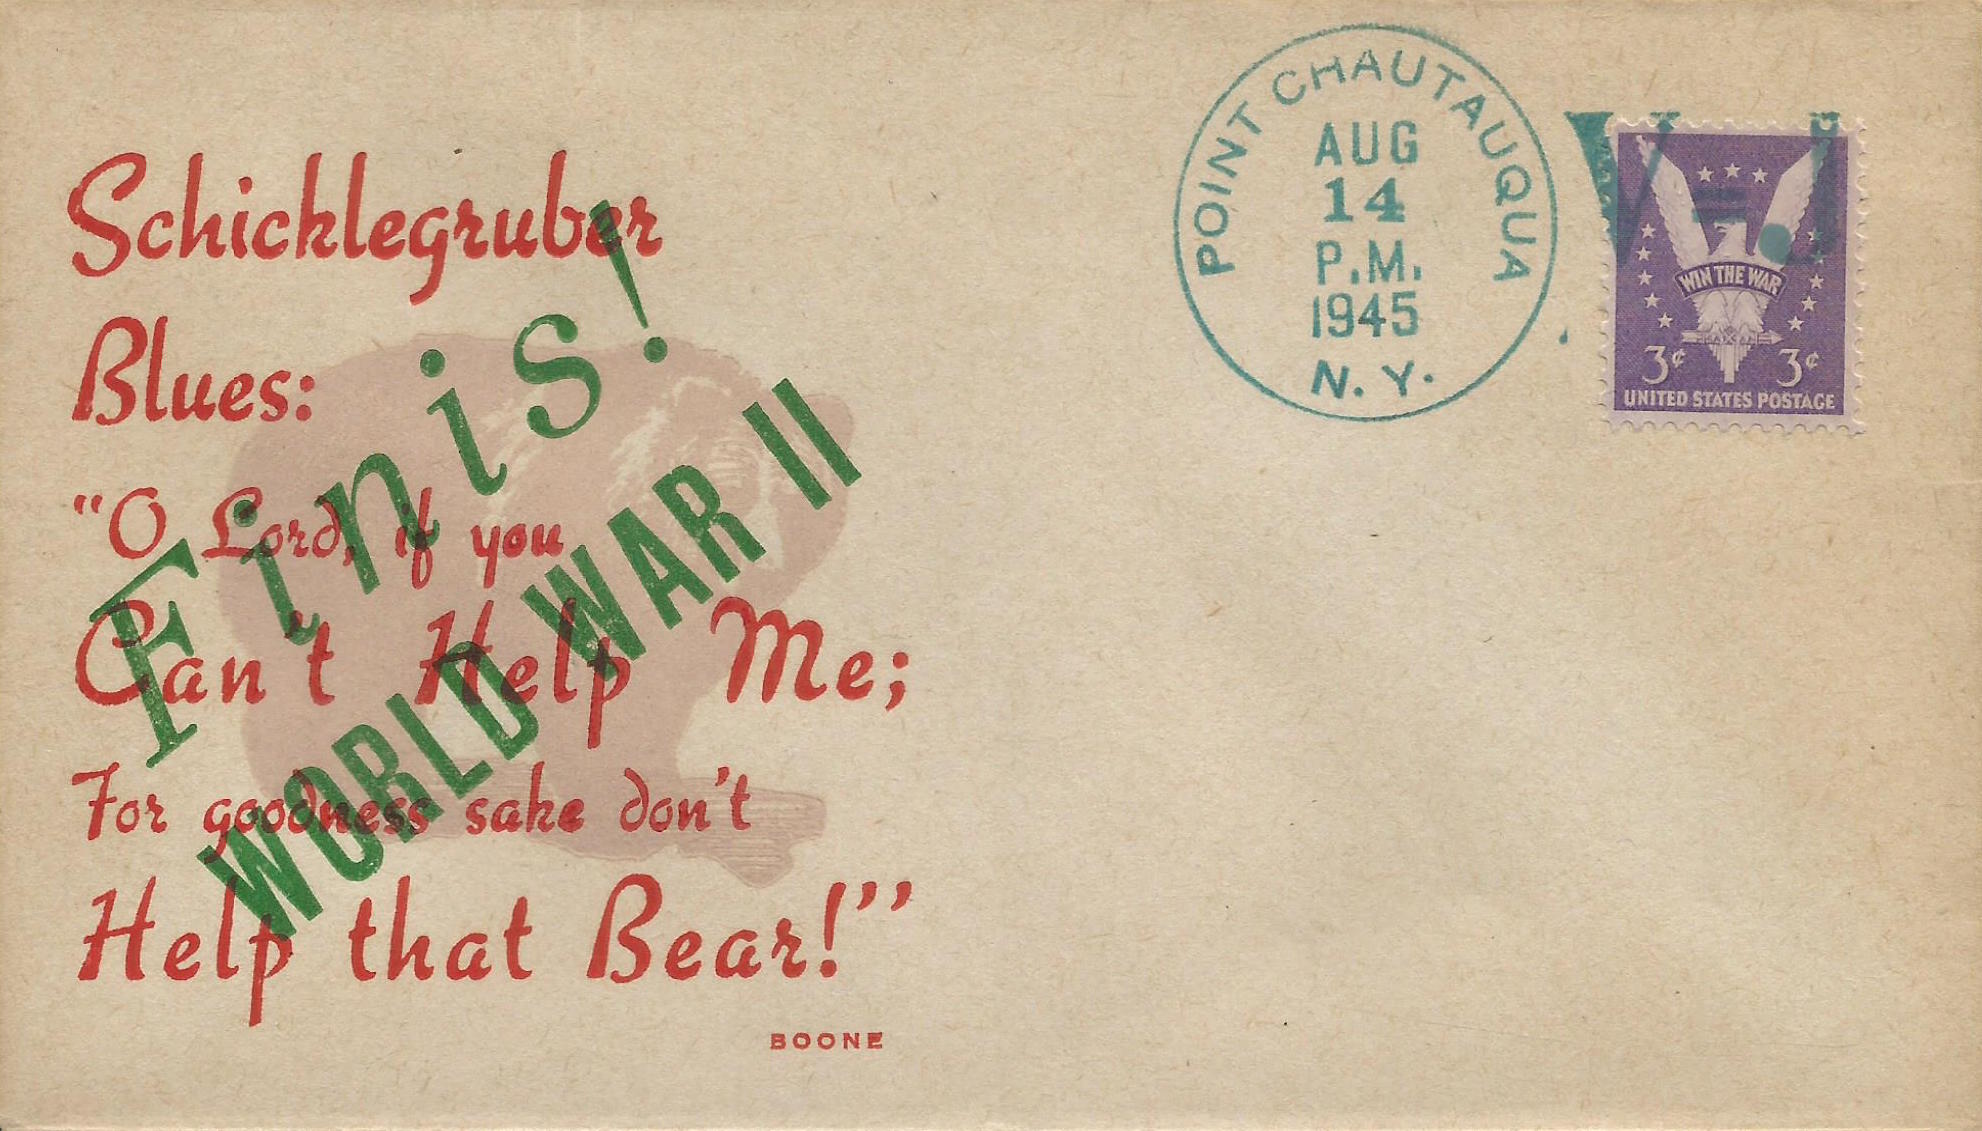 Schicklegruber
Blues:
"O Lord, if you
Can't Help Me;
For goodness sake don't
Help that Bear!"
BOONE
Finis!
WORLD WAR II
POINT CHAUTAUQUA
AUG
14
P.M.
1945
N. Y.
V-J
WIN THE WAR
3¢ 3¢
UNITED STATES POSTAGE